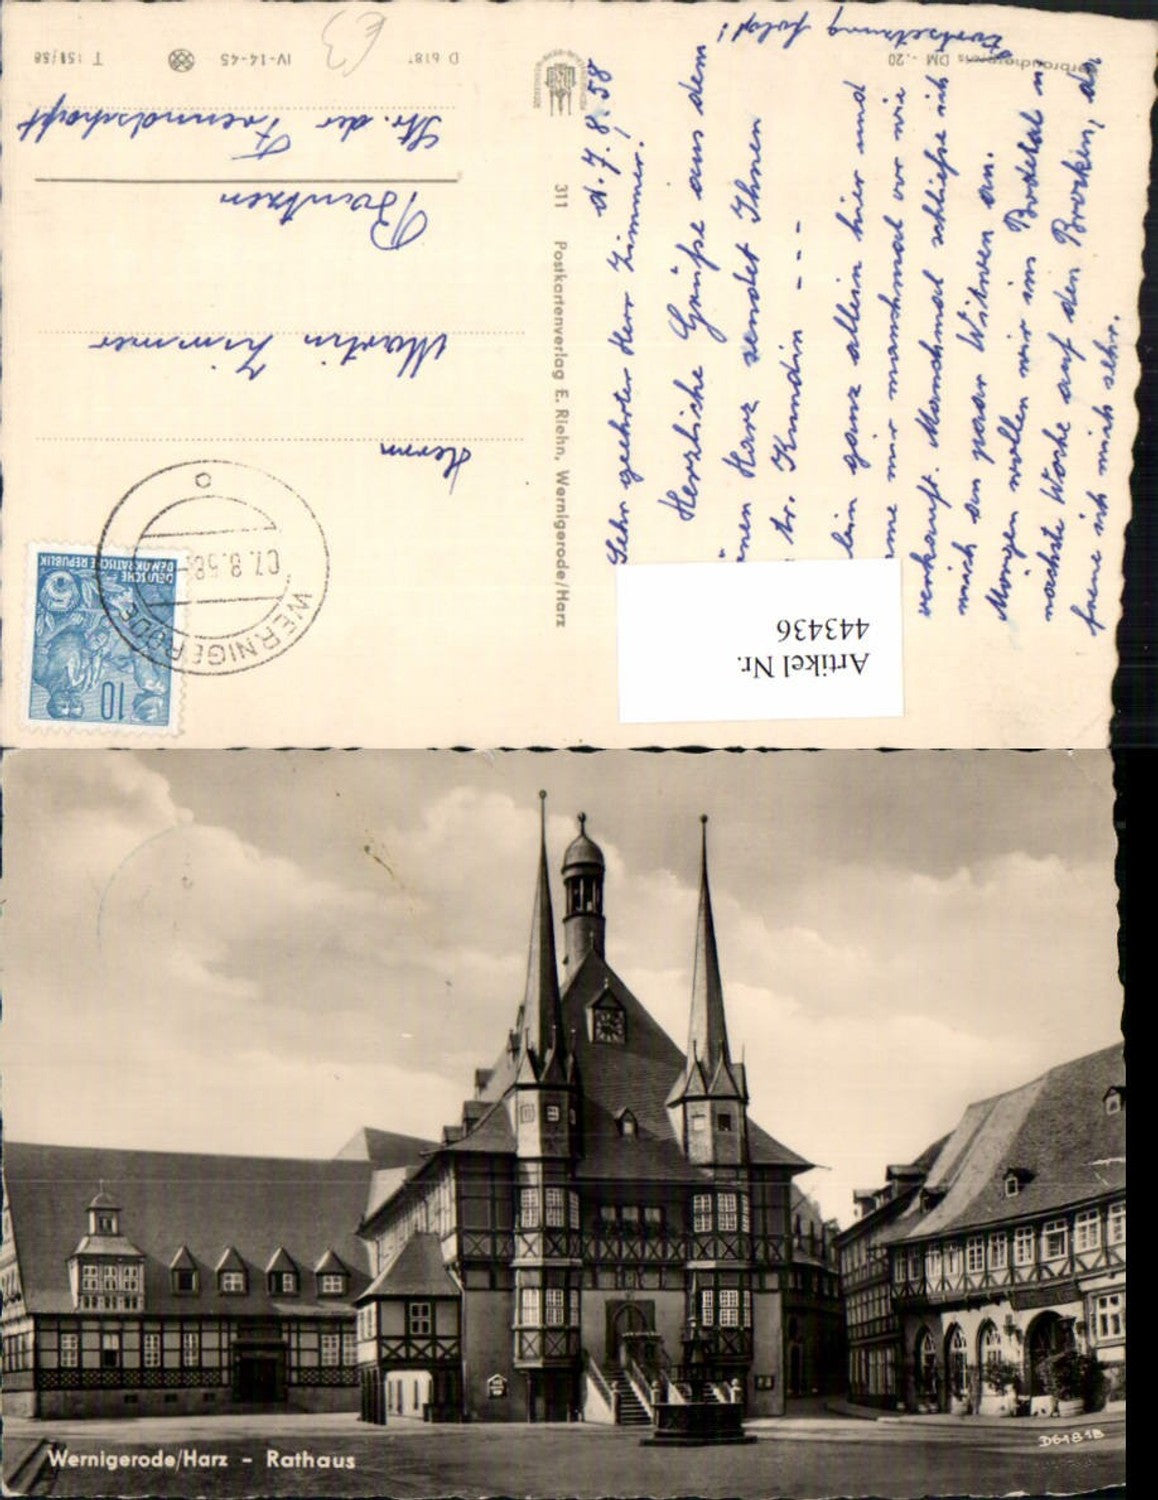 d. 7. 8. 58
Sehr geehrter Herr Zimmer!
Herzliche Grüße aus dem
Harz sendet Ihnen
Kundin - - -
ganz allein hier und
mir manchmal vor wie
verkauft. Manchmal schließe ich
mich an paar Witwen an.
Morgen wollen wir ins Bodetal u.
nächste Woche auf den Brocken, da
freue ich mich sehr.
Fortsetzung folgt!
Verbraucherpreis DM -.20
Artikel Nr.
443436
311 Postkartenverlag E. Riehn, Wernigerode/Harz
DEUTSCHE
DEMOKRATISCHE REPUBLIK
5
10
WERNIGERODE
07.8.58
Herrn
Martin Zimmer
Bautzen
Str. der Freundschaft
D 618
IV-14-45
T 151/58
Wernigerode/Harz - Rathaus
D6181B